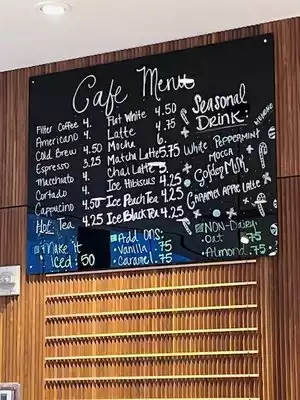 Cafe Menu
Filter Coffee 4.
Americano 4.
Cold Brew 4.50
Espresso 3.25
Macchiato 4.
Cortado 4.
Cappucino 4.50
Hot Tea 4.25
Make it
iced: .50
Flat White 4.50
Latte 4.75
Mocha 6.
Matcha Latte 5.75
Chai Latte
Ice Hibiscus 4.25
Ice Peach Tea 4.25
Ice Black Tea 4.25
Add ons:
Vanilla .75
Caramel .75
Seasonal
DRINK:
White PEPPERMINT
MOCCA
Golden MILK
CARAMEL APPLE LATTE
NON-Dairy
Oat .75
Almond .75